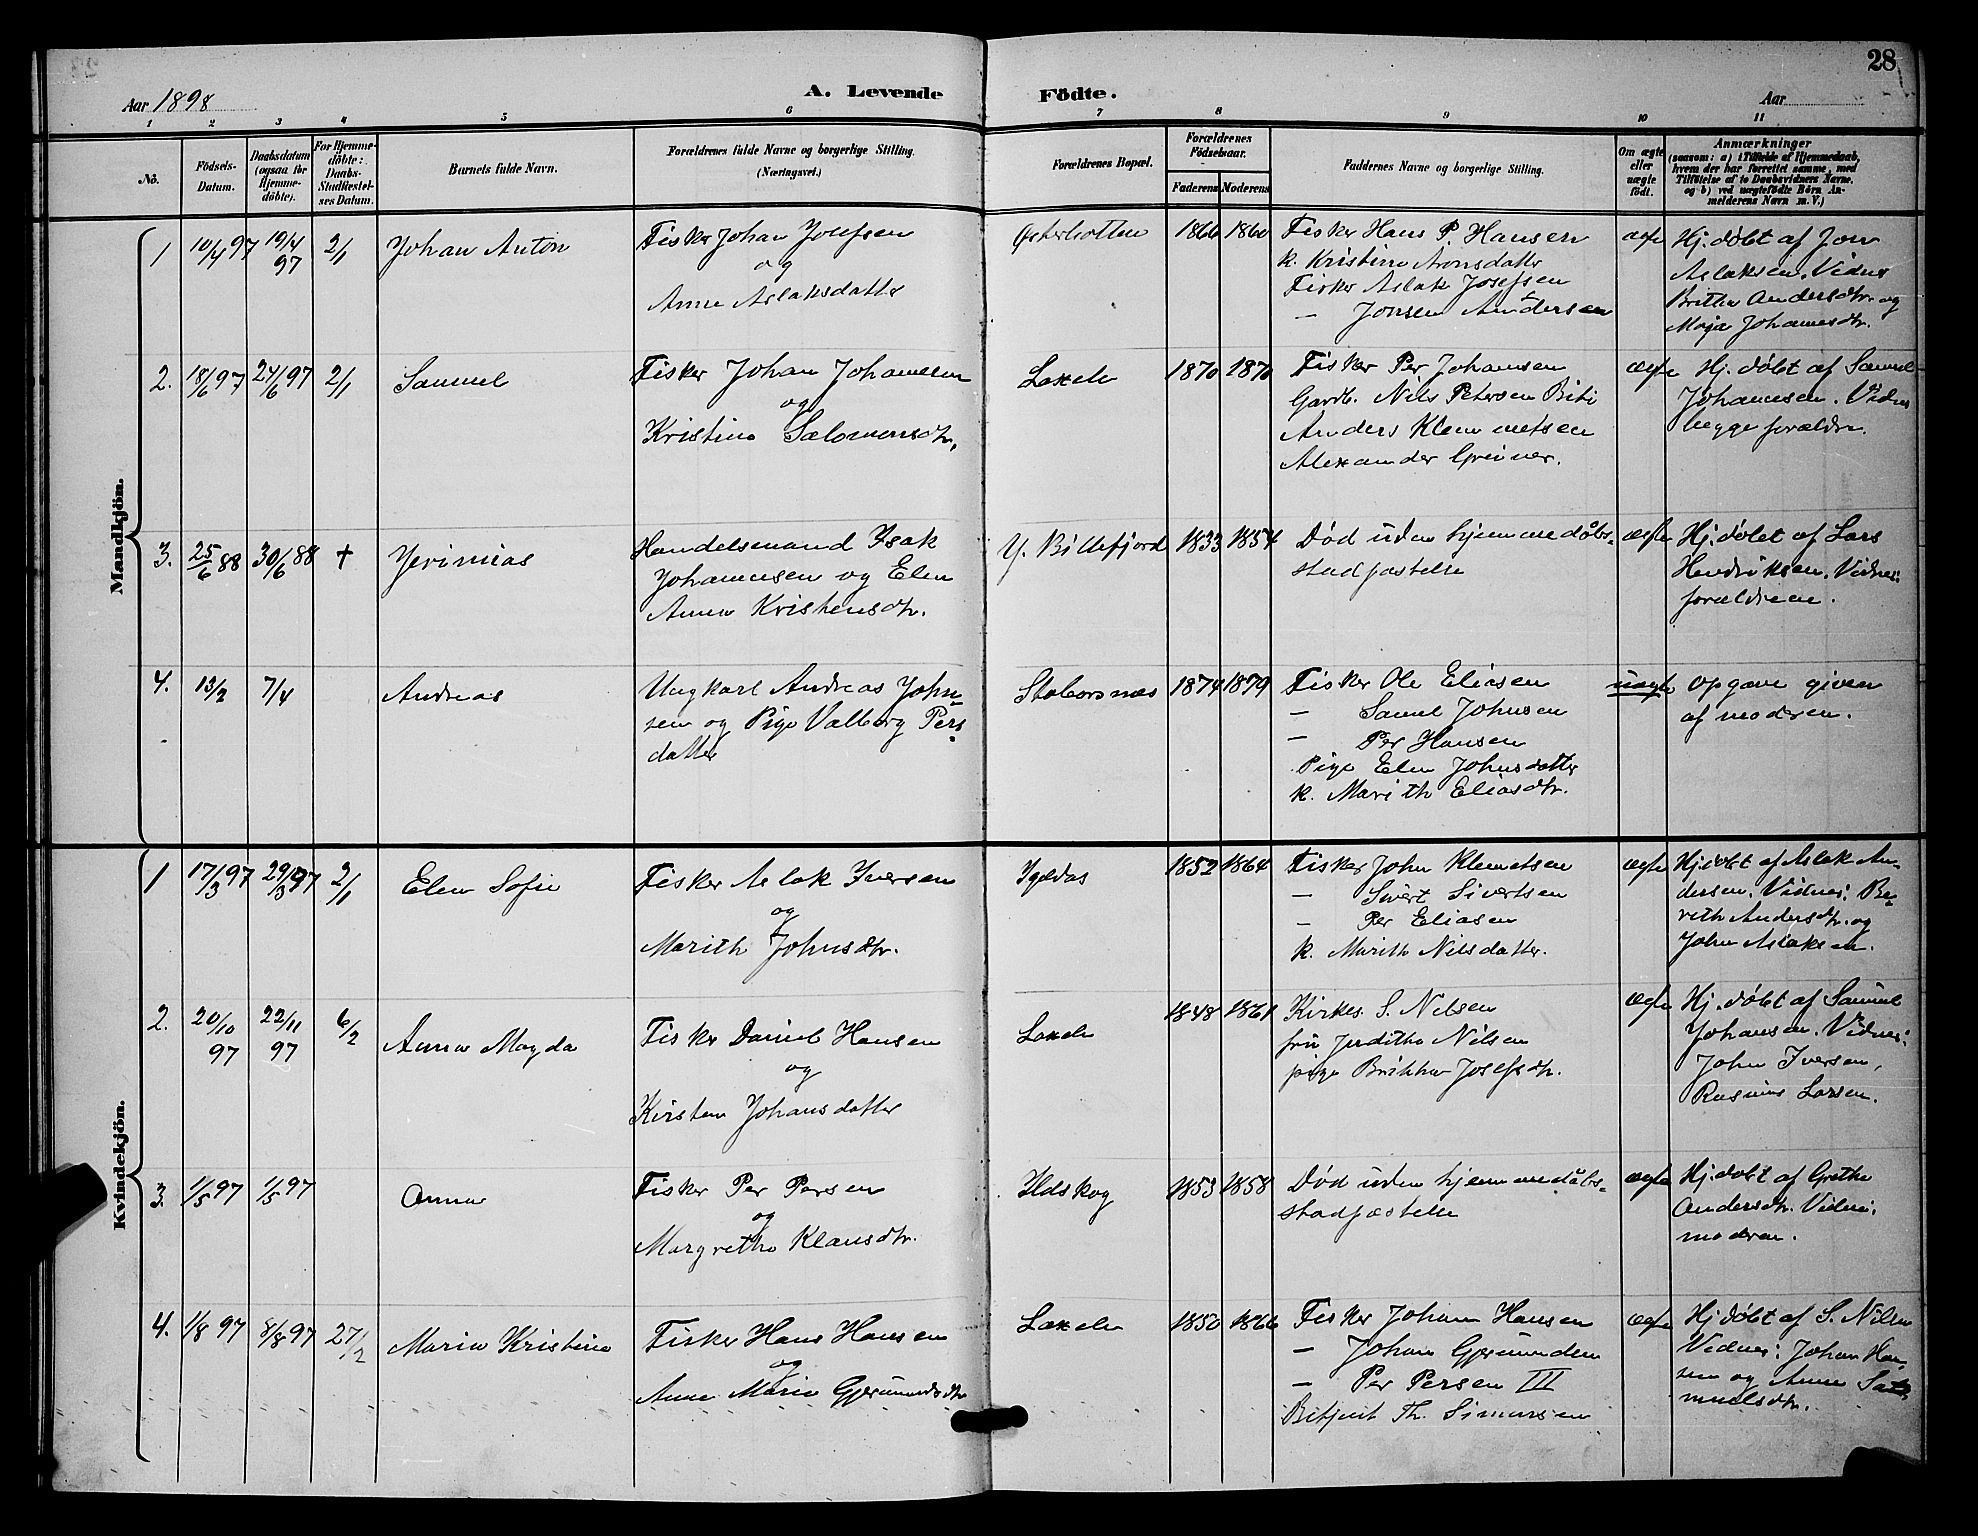 28
Aar 1898
A. Levende
Födte.
Aar
1 2 3 4 5 6 7 8 9 10 11
No.
Födsels-
Datum.
Daabsdatum
(ogsaa for
Hjemme-
döbte).
For Hjemme-
döbte:
Daabs-
Stadfæstel-
ses Datum.
Barnets fulde Navn.
Forældrenes fulde Navne og borgerlige Stilling.
(Næringsvei.)
Forældrenes Bopæl.
Forældrenes
Födselsaar.
Faderens Moderens
Faddernes Navne og borgerlige Stilling.
Om ægte
eller
uægte
födt.
Anmærkninger
(saasom: a) i Tilfælde af Hjemmedaab,
hvem der har forrettet samme, med
Tilföielse af to Daabsvidners Navne,
og b) ved uægtefödte Börn An-
melderens Navn m. V.)
Mandkjön.
1 10/4 97 19/4 97 2/1 Johan Anton
Fisker Johan Josefsen
og
Anne Aslaksdatter
Østerbotten 1866 1860
Fisker Hans P Hansen
k. Kristine Aronsdatter
Fisker Aslak Josefsen
— Jonsen Andersen
ægte
Hj. døbt af Jon
Aslaksen. Vidner
Britha Andersdtr. og
Maja Johannesdtr.
2. 18/6 97 24/6 97 2/1 Samuel
Fisker Johan Johannesen
og
Kristine Salomonsdtr.
Laxelv 1870 1870
Fisker Per Johansen
Gardb. Nils Petersen Biti
Anders Klemmetsen
Alexander Greiner.
ægte
Hj. døbt af Samuel
Johannesen. Vidner
begge forældre.
3. 25/6 88 30/6 88 † Jerimias
Handelsmand Isak
Johannesen og Elen
Anna Kristensdtr.
Y. Billefjord 1833 1854
Død uden hjemmedåbs-
stadfæstelse
ægte
Hj. døbt af Lars
Hendriksen. Vidner:
forældrene.
4. 13/2 7/4 Andreas
Ungkarl Andreas John-
sen og Pige Valborg Pers-
datter
Staborsnæs 1874 1879
Fisker Ole Eliasen
— Samuel Johnsen
— Per Hansen
Pige Elen Johnsdatter
k. Marith Eliasdtr.
uægte
Opgave given
af moderen.
Kvindekjön.
1 17/3 97 29/3 97 2/1 Elen Sofie
Fisker Aslak Iversen
og
Marith Johnsdtr.
Igeldas 1852 1864
Fisker John Klemetsen
— Sivert Sivertsen
— Per Eliasen
k. Marith Nilsdatter.
ægte
Hj. døbt af Aslak An-
dersen. Vidner: Be-
rith Andersdtr. og
John Aslaksen.
2. 20/10 97 22/11 97 6/2 Anna Magda
Fisker Daniel Hansen
og
Kirsten Johansdatter
Laxelv 1848 1861
Kirkes. S. Nilsen
fru Judithe Nilsen
pige Brikka Josefsdtr.
ægte
Hj. døbt af Samuel
Johansen. Vidner:
John Iversen,
Rasmus Larsen.
3. 1/5 97 1/5 97 Anna
Fisker Per Persen
og
Margrethe Klausdtr.
Ildskog 1853 1858
Død uden hjemmedåbs-
stadfæstelse
ægte
Hj. døbt af Grethe
Andersdtr. Vidne:
moderen.
4. 1/8 97 8/8 97 27/2 Maria Kristine
Fisker Hans Hansen
og
Anne Maria Gjermundsdtr
Laxelv 1850 1866
Fisker Johan Hansen
— Johan Gjermundsen
— Per Persen III
Th. Simonsen
ægte
Hj. døbt af S. Nilsen
Vidner: Johan Han-
sen og Anne Sa-
muelsdtr.